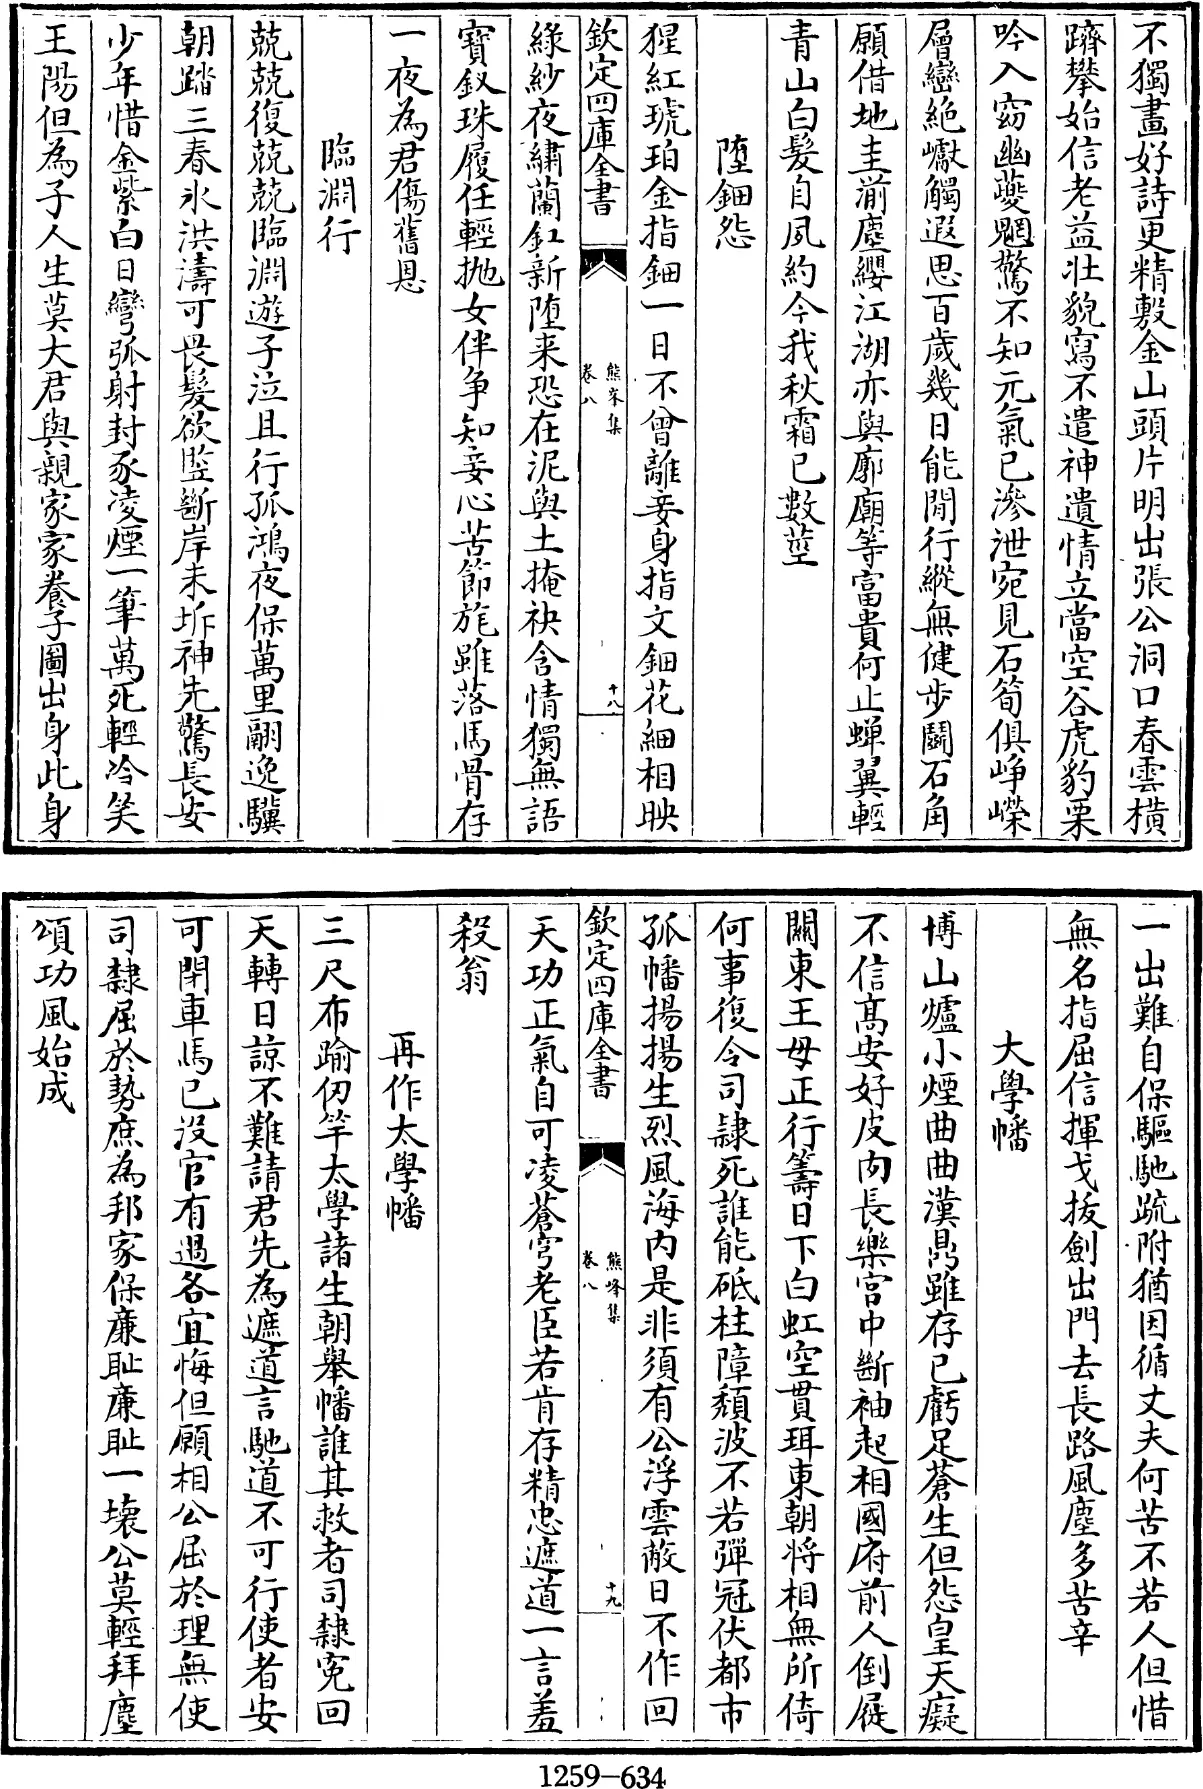 不獨畫好詩更精敷金山頭片明出張公洞口春雲橫
躋攀始信老益壯貌寫不遣神遺情立當空谷虎豹栗
吟入窈幽夔魍驚不知元氣已滲泄宛見石筍俱崢嶸
層巒絶巘觸遐思百歲幾日能閒行縱無健步鬭石角
願借地圭湔塵纓江湖亦與廓廟等富貴何止蟬翼輕
青山白髮自夙約今我秋霜已數莖
墮鈿怨
猩紅琥珀金指鈿一日不曾離妾身指文鈿花細相映
欽定四庫全書
熊峯集
卷八
十八
綠紗夜繡蘭釭新墮來恐在泥與土掩袂含情獨無語
寶釵珠履任輕抛女伴争知妾心苦節旄雖落馬骨存
一夜為君傷舊恩
臨淵行
兢兢復兢兢臨淵遊子泣且行孤鴻夜保萬里翮逸驥
朝踏三春氷洪濤可畏髮欲豎斷岸未坼神先驚長安
少年惜金紫白日彎弧射封豕凌煙一筆萬死輕冷笑
王陽但為子人生莫大君與親家家養子圖出身此身
一出難自保驅馳疏附猶因循丈夫何苦不若人但惜
無名指屈信揮戈拔劍出門去長路風塵多苦辛
大學幡
博山爐小煙曲曲漢鼎雖存已虧足蒼生但怨皇天癡
不信髙安好皮肉長樂宫中斷袖起相國府前人倒屣
關東王母正行籌日下白虹空貫珥東朝将相無所倚
何事復令司隷死誰能砥柱障頽波不若彈冠伏都市
孤幡揚揚生烈風海内是非須有公浮雲蔽日不作回
欽定四庫全書
熊峰集
卷八
十九
天功正氣自可凌蒼穹老臣若肯存精忠遮道一言羞
殺翁
再作太學幡
三尺布踰仞竿太學諸生朝舉幡誰其救者司隸寃回
天轉日諒不難請君先為遮道言馳道不可行使者安
可閉車馬已沒官有過各宜悔但願相公屈於理無使
司隸屈於勢庶為邦家保廉恥廉恥一壊公莫輕拜塵
頌功風始成
1259—634